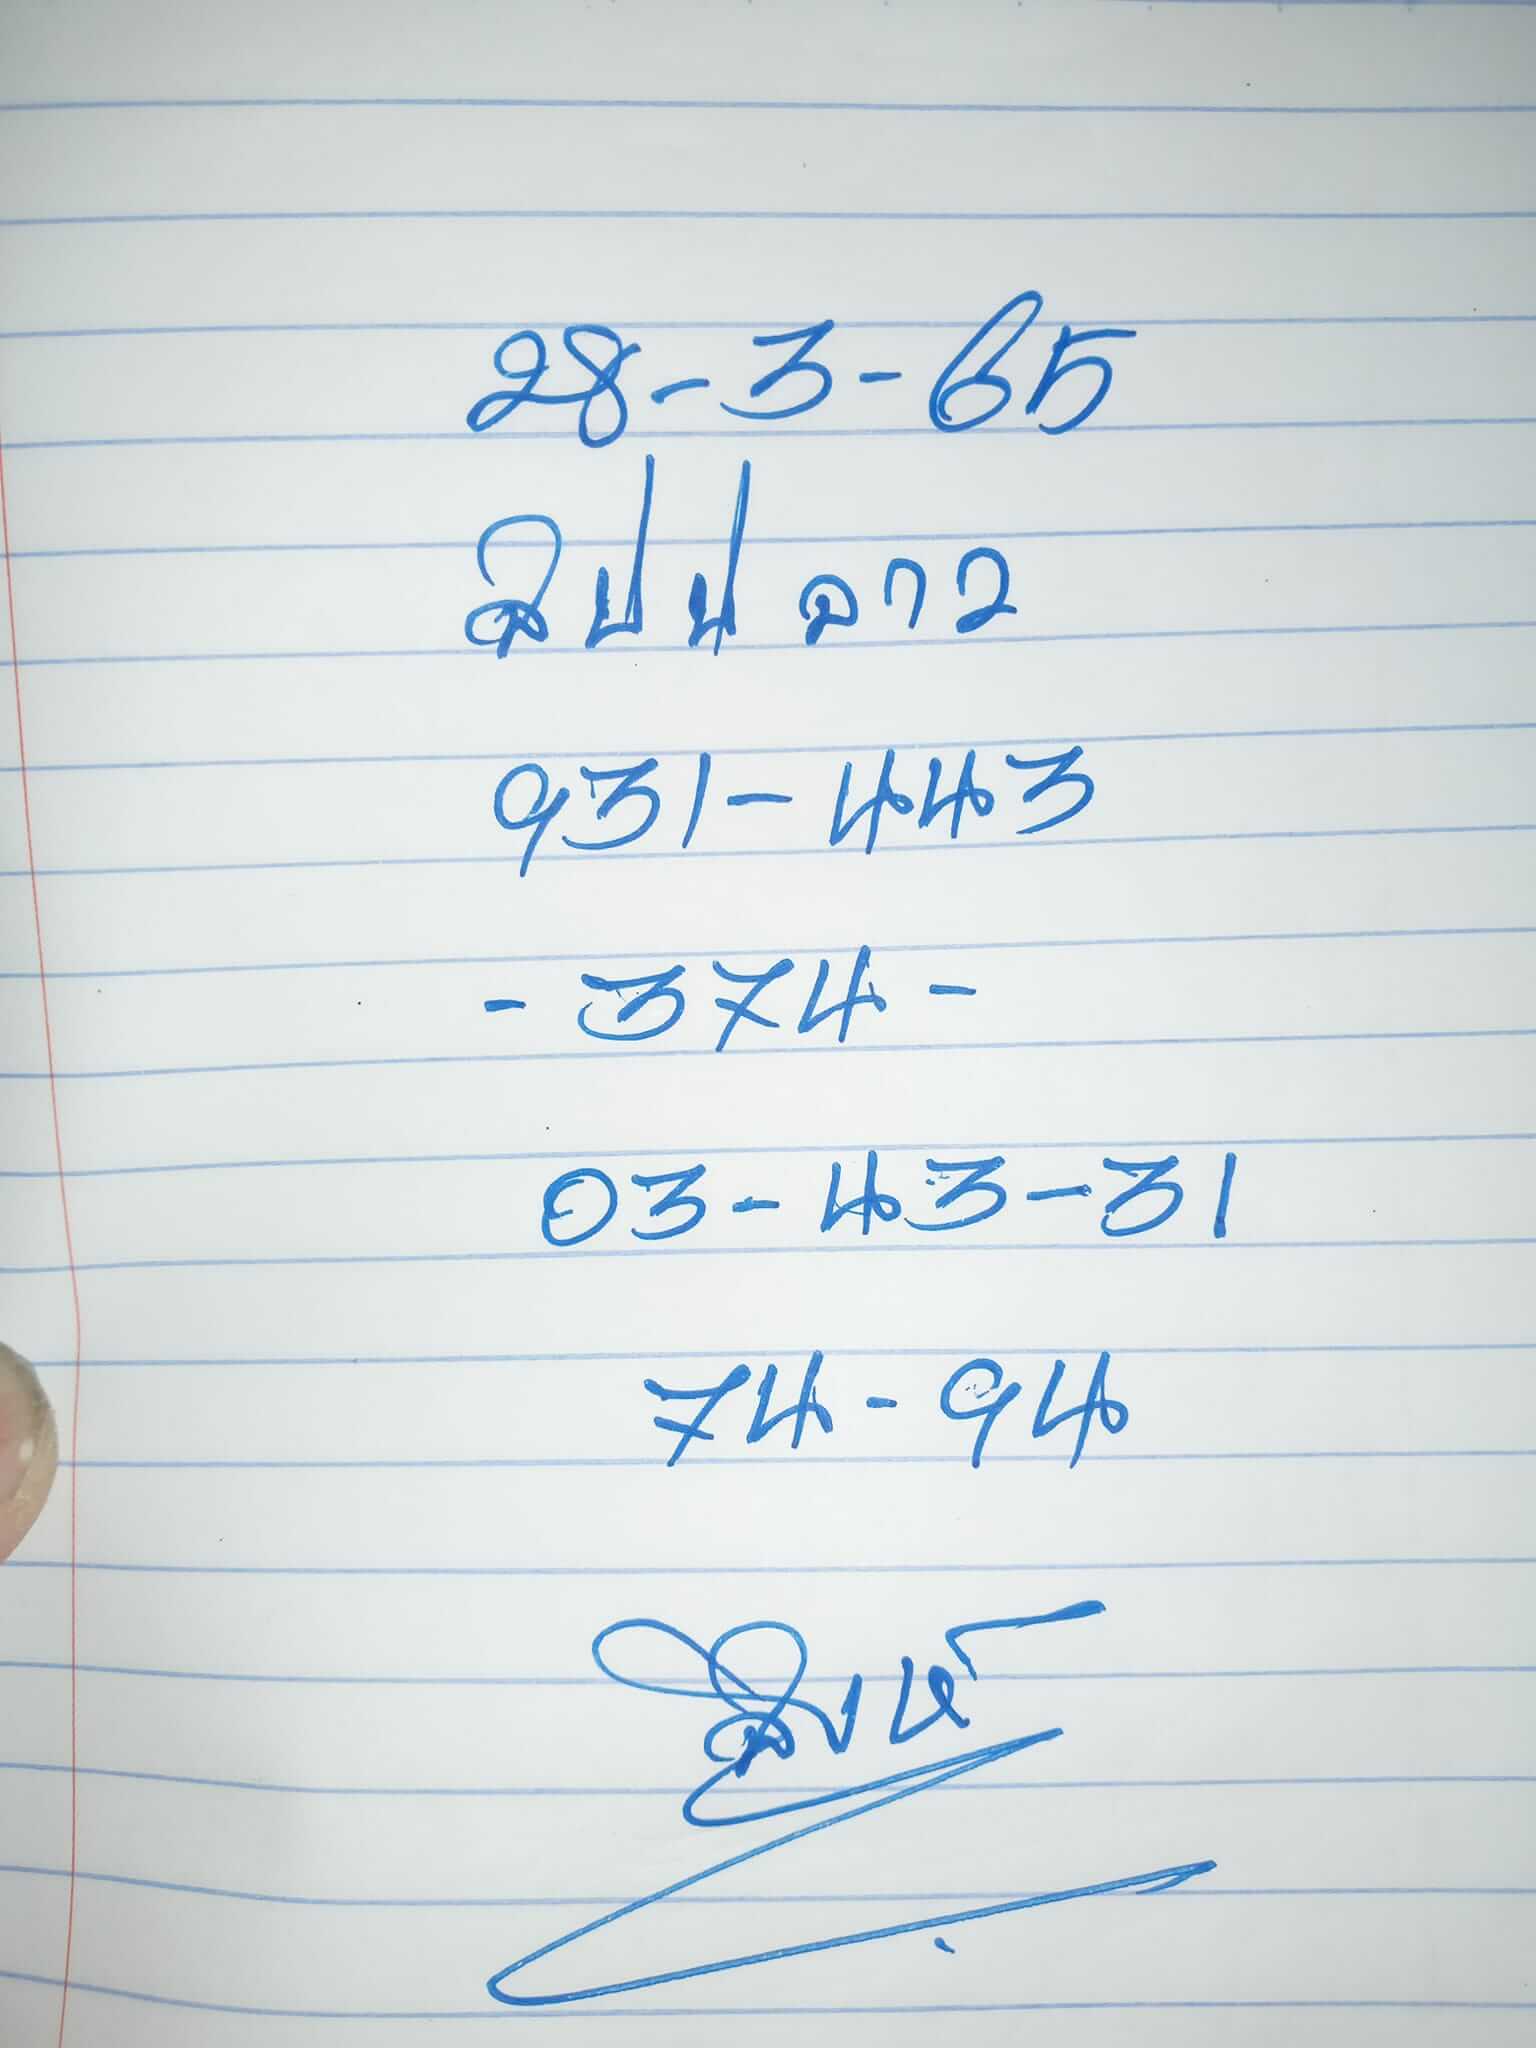 28-3-65
สปป ลาว
931-443
- 374 -
03-43-31
74-94
สิงห์